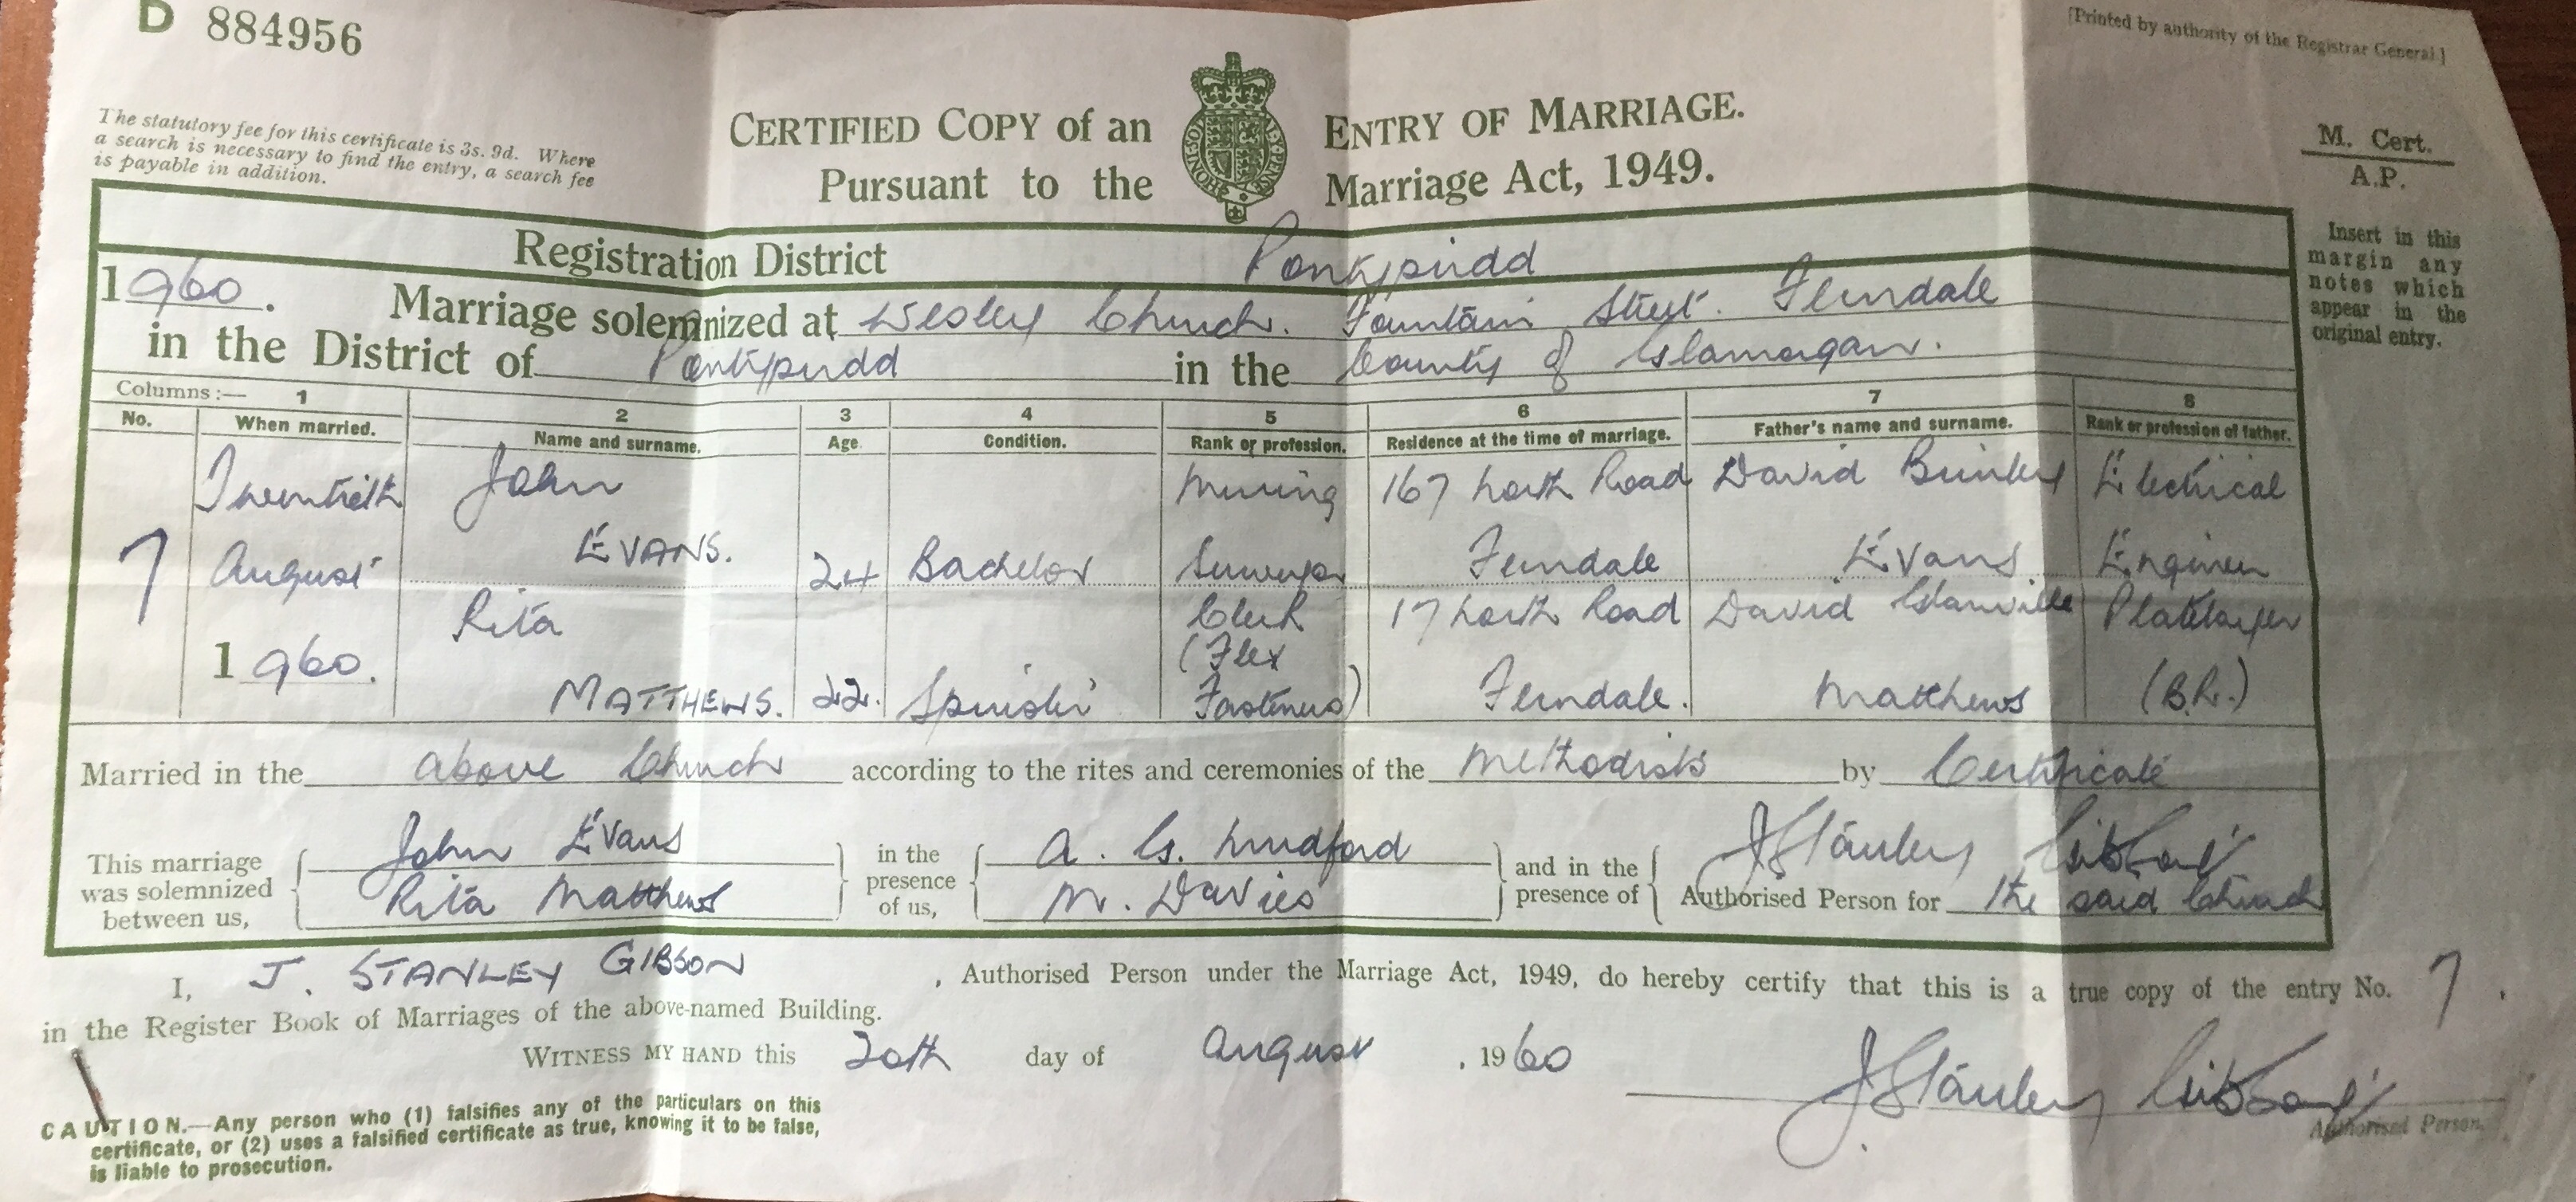 D 884956
[Printed by authority of the Registrar General.]
The statutory fee for this certificate is 3s. 9d. Where
a search is necessary to find the entry, a search fee
is payable in addition.
CERTIFIED COPY of an ENTRY OF MARRIAGE.
Pursuant to the Marriage Act, 1949.
M. Cert.
A.P.
Insert in this
margin any
notes which
appear in the
original entry.
Registration District Pontypridd
1960. Marriage solemnized at Wesley Church. Fountain Street. Ferndale
in the District of Pontypridd in the County of Glamorgan.
Columns:— 1 2 3 4 5 6 7 8
No. When married. Name and surname. Age. Condition. Rank or profession. Residence at the time of marriage. Father's name and surname. Rank or profession of father.
Twentieth John Mining 167 North Road David Electrical
7 August EVANS. 24 Bachelor Surveyor Ferndale Evans Engineer
Rita Clerk 17 North Road David Glanville Platelayer
1960. (Flex
MATTHEWS. 22. Spinster Fasteners) Ferndale. Matthews (B.R.)
Married in the above Church according to the rites and ceremonies of the Methodists by Certificate
This marriage
was solemnized
between us,
John Evans
Rita Matthews
in the
presence
of us,
A. G. Mudford
M. Davies
and in the
presence of
J Stanley Gibson
Authorised Person for the said Church
I, J. STANLEY GIBSON, Authorised Person under the Marriage Act, 1949, do hereby certify that this is a true copy of the entry No. 7.
in the Register Book of Marriages of the above-named Building.
WITNESS MY HAND this 20th day of August, 1960
J Stanley Gibson
Authorised Person.
CAUTION.—Any person who (1) falsifies any of the particulars on this
certificate, or (2) uses a falsified certificate as true, knowing it to be false,
is liable to prosecution.